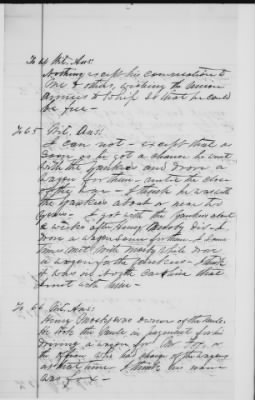 To 64 Wit. Ans:
Nothing except his conversation to
me & others, wishing the Union
Armies to whip so that he could
be free -
To 65 Wit. Ans:
I can not - except that as
soon as he got a chance he went
with the Yankees and drove a
wagon for them until the close
of the war - I think he was with
the Yankees about or near two
years - I got with the Yankees about
a weeks after Henry Mosby did - I
drove a wagon some for them. I some
times met with Mosby while drove
a wagon for the Yankees - I think
it was in North Carolina that
I met with him -
To 66 Wit. Ans:
Henry Mosby was owner of the mule.
He took the mule in payment for his
driving a wagon for Mr Fox, or
the officer who had charge of the wagons
at that time I think his name
was Fox -